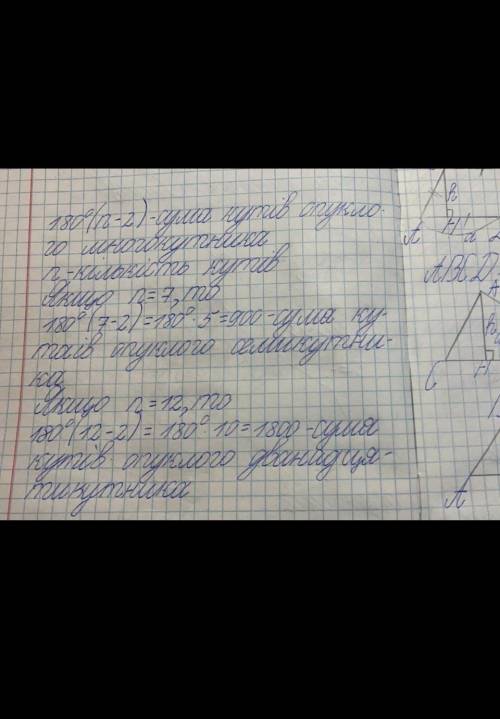 180°(n-2)-сума кутів опукло-
го многокутника
n-кількість кутів
Якщо n=7, то
180°(7-2)=180°·5=900-сума ку-
таів опуклого семикутни-
ка
Якщо n=12, то
180°(12-2)=180°·10=1800-сума
кутів опуклого дванадця-
тикутника
h
A H a
ABCD
A
h
C H
A